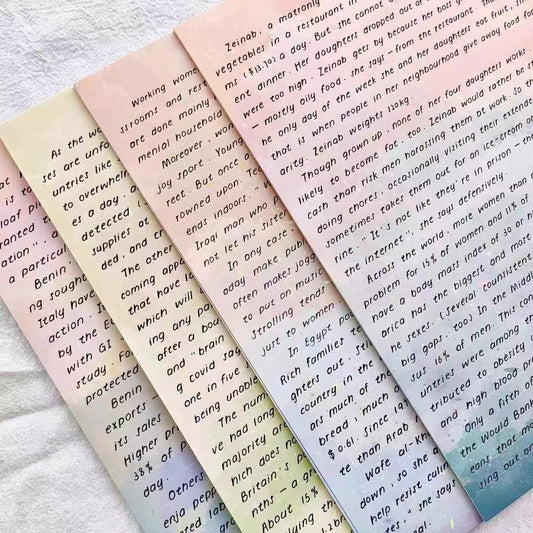 is to
loaf pi
ranted to
ation".
a particul
Benin
ng sough
Italy have
action. It
by the E
with GI
study. Fo
protected
Benin
exports
its sales
Higher pr
38% of p
day.
Others
enja pepp
ated lab
As the wo
ses are unfo
untries like
to overwhel
es a day. a
detected i
supplies at
d, and cr
The other
coming app
that have lo
which will
ing any pa
after a bou
and "brain
g covid say
one in five
being unable
The num
ve had long
majority are
hich does n
Britain's p
nths - a gr
About 15%
Working wome
ssrooms and res
are done mainly
menial household
Moreover, wo
joy sport. Young
reet. But once a
rowned upon, te
ends indoors. W
Iraqi man who
not let his sister
In any case,
oday make publi
often makes jogg
to put on music
Strolling tends
just to women
In Egypt po
Rich families te
ghters out. Sti
country in the
ars, much of
bread, much o
$ 0.61, since 19
te than Arab
Wafe al-Kh
down, so she
help resist culin
tes," she says
Zeinab, a matronly
vegetables in a restaurant in
ms ($13.70) a day. But she cannot
ent dinner. Her daughters dropped out of
were too high. Zeinab gets by because her boss g
- mostly oily food, she says - from the restaurant. The
he only day of the week she and her daughters eat fruit, sin
that is when people in her neighbourhood give away food for
arity. Zeinab weighs 120kg.
Though grown up, none of her four daughters works.
likely to become fat, too. Zeinab would rather be st
cash than risk men harassing them at work. So th
doing chores, occasionally visiting their extende
sometimes takes them out for an ice-cream o
fine. "It's not like they're in prison - the
the internet", she says defensively.
Across the world, more women than
problem for 15% of women and 11% of
have a body mass index of 30 or h
arica has the biggest and most
he sexes. (Several countries
big gaps, too) In the Middl
sus 16% of men. This con
untries were among the
tributed to obesity
and high blood pre
Only a fifth of
the World Bank
eans that mo
sing out on